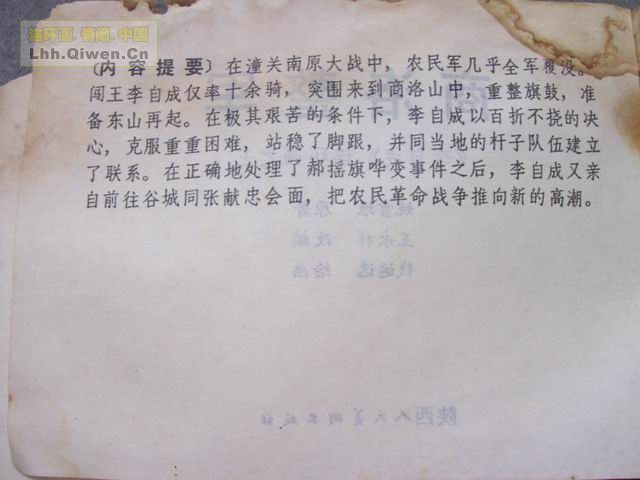 连环画.奇闻.中国
Lhh.Qiwen.Cn
〔内容提要〕在潼关南原大战中，农民军几乎全军覆没。
闯王李自成仅率十余骑，突围来到商洛山中，重整旗鼓，准
备东山再起。在极其艰苦的条件下，李自成以百折不挠的决
心，克服重重困难，站稳了脚跟，并同当地的杆子队伍建立
了联系。在正确地处理了郝摇旗哗变事件之后，李自成又亲
自前往谷城同张献忠会面，把农民革命战争推向新的高潮。
原著
王永祥 改编
钱运选 绘画
陕西人民美术出版社